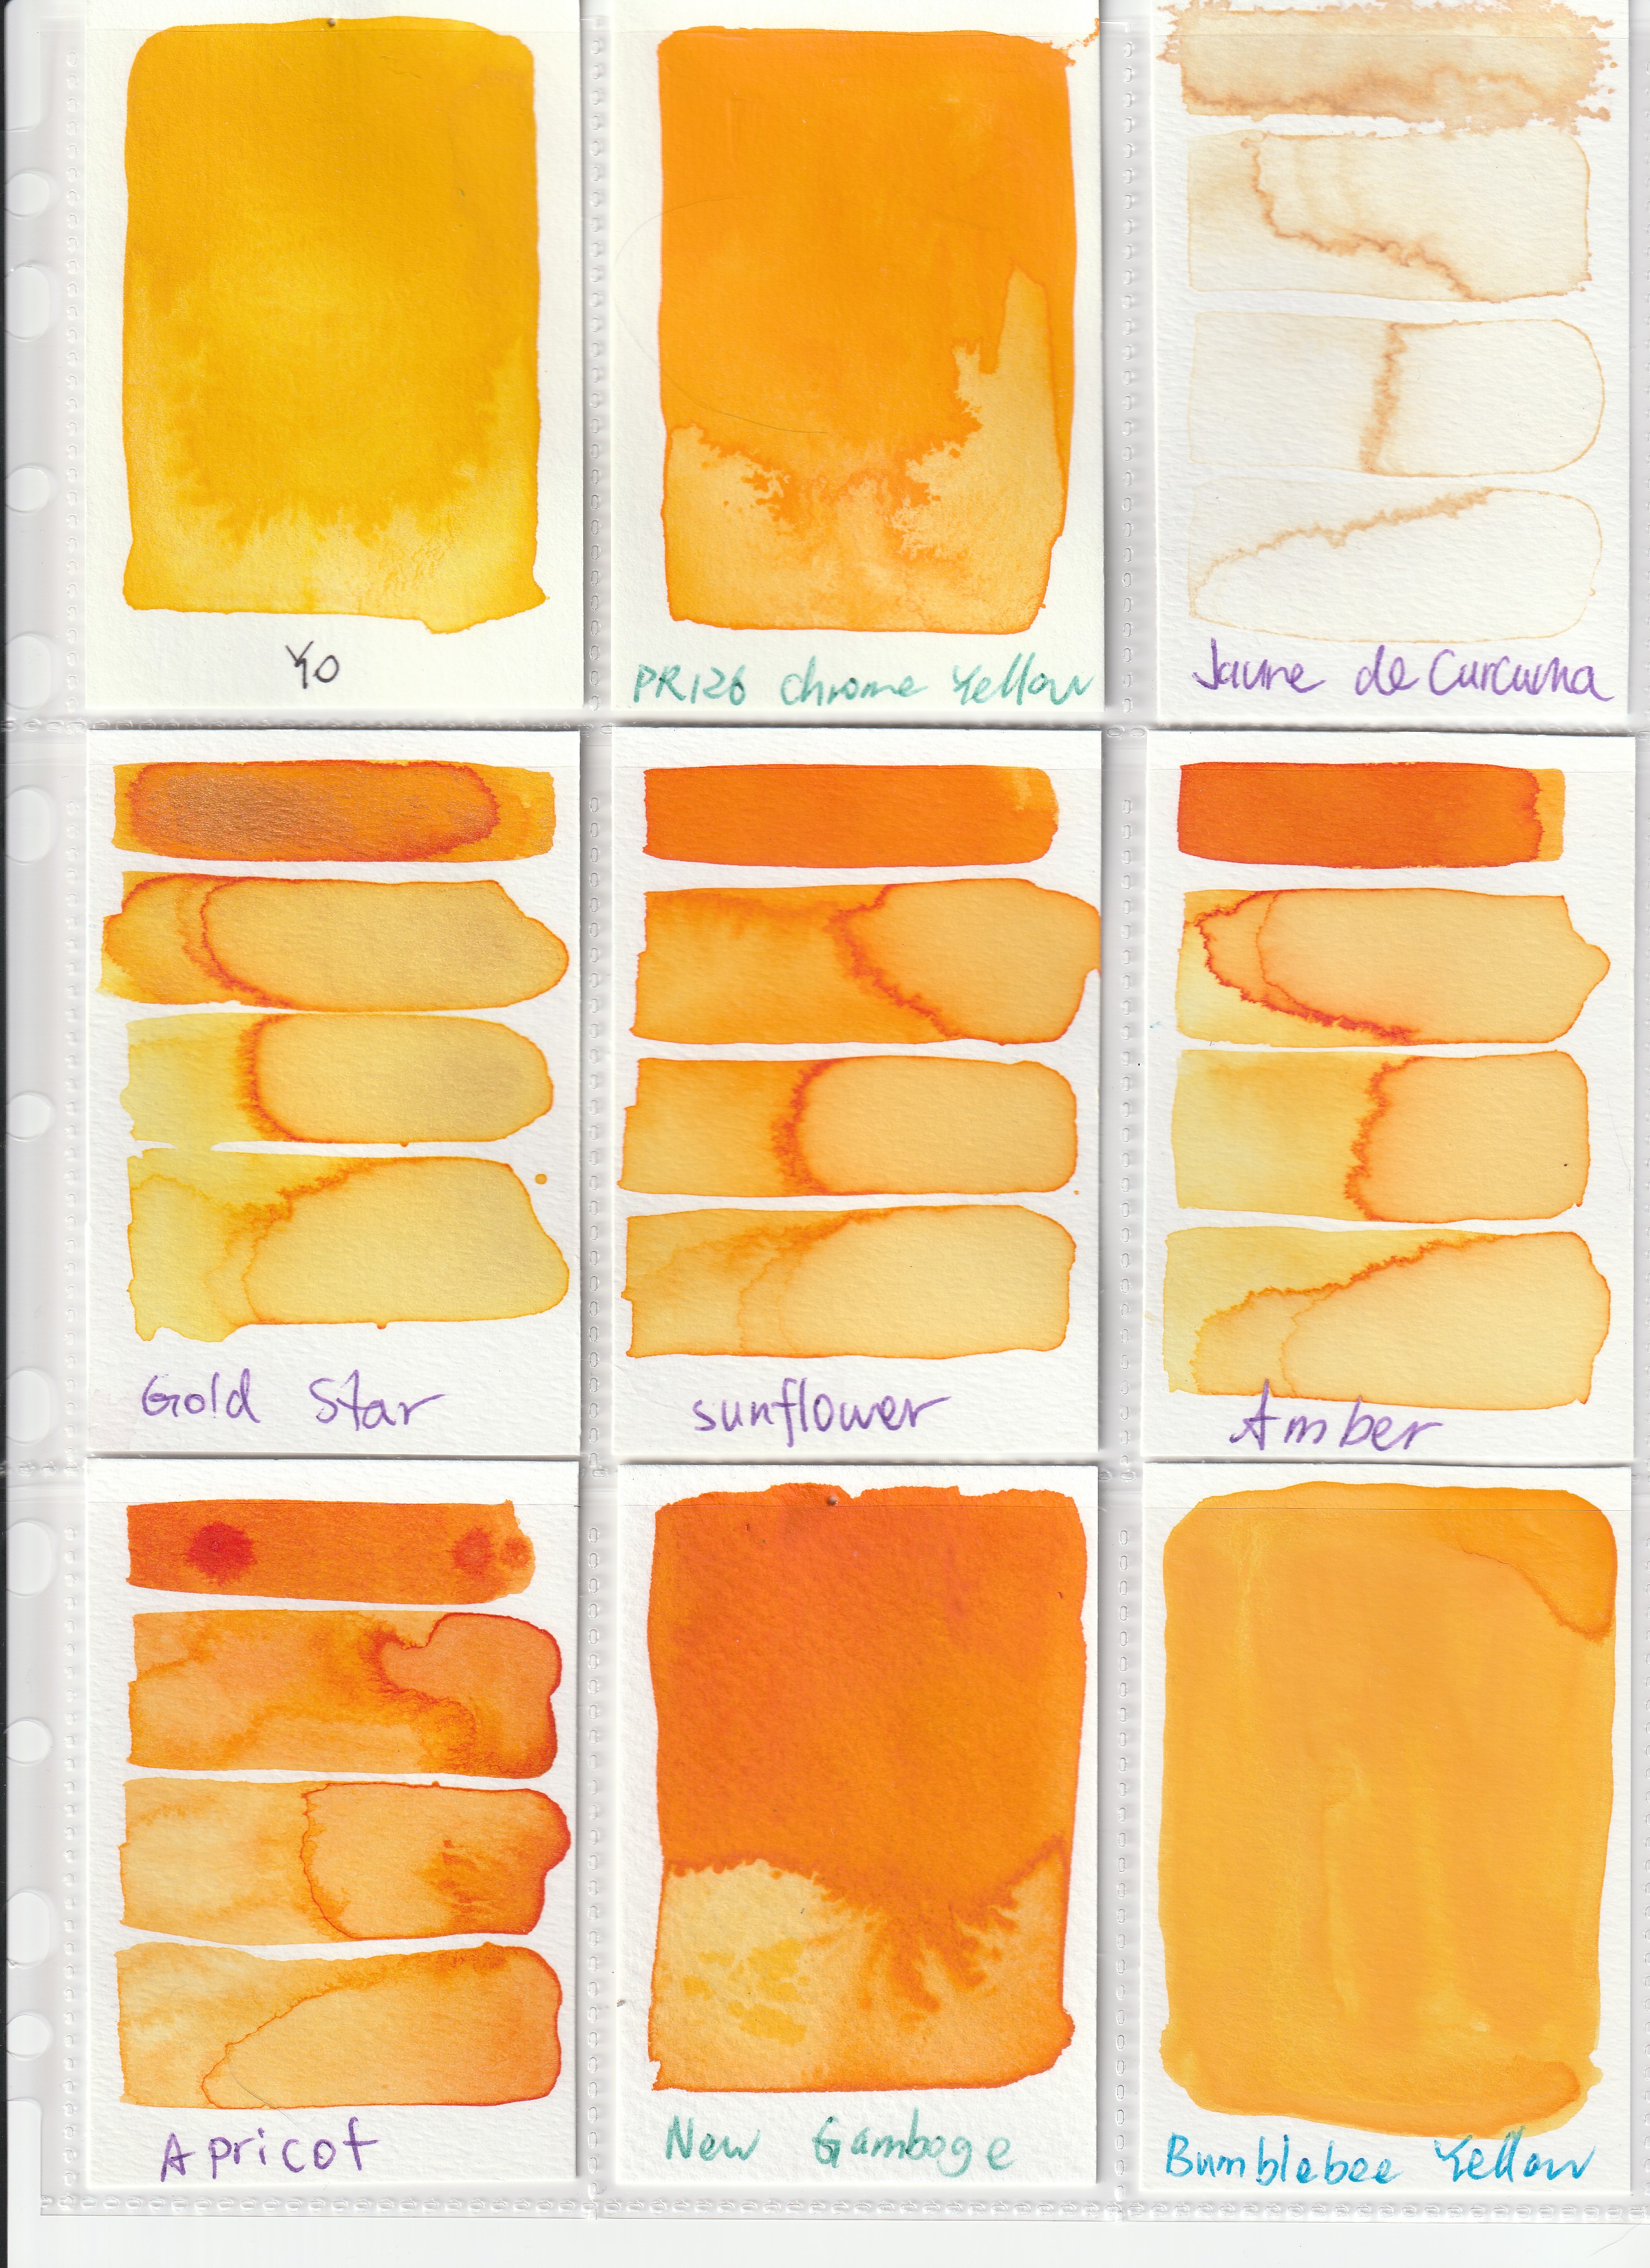 YO
PR126 Chrome Yellow
Jaune de Curcuma
Gold Star
sunflower
Amber
Apricot
New Gamboge
Bumblebee Yellow